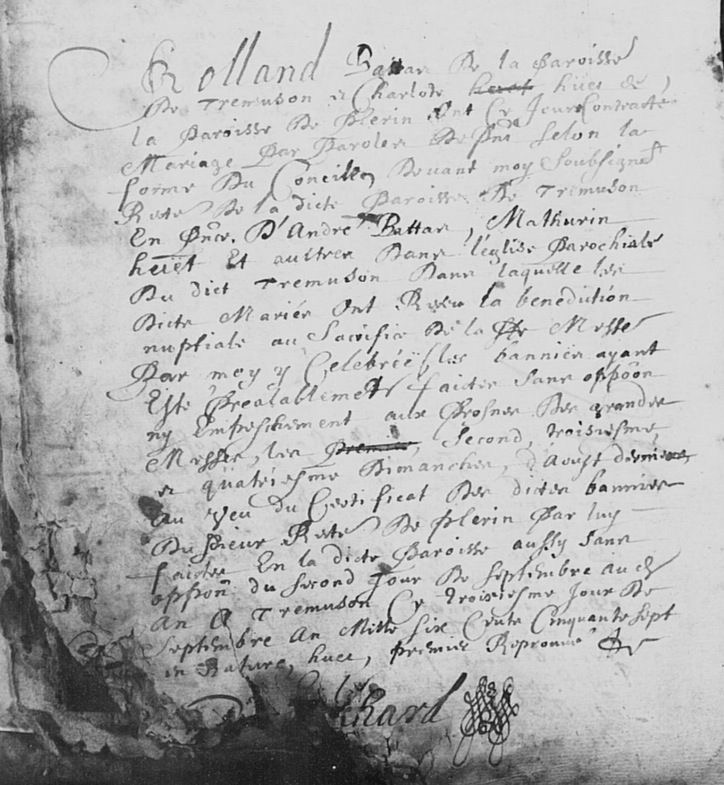 Rolland Battas De la Paroisse
De Tremuson et Charlote huet hüet de
la Paroisse De Plerin Ont Ce Jour Contracté
Mariage Par Paroles De pnt Selon la
forme Du Concille, Devant moy Soubsigné
Recter De la dicte Paroisse De Tremuson
En Pnce. D'André Battas, Mathurin
hüet Et aultres Dans l'église Parochiale
Du dict Tremuson Dans laquelle les
Dicts Mariés Ont Reseu la benediction
nuptiale au Sacrifice De la Ste Messe
Par moy y Celebrée, les bannies ayant
Esté Prealablemet faictes Sans opposon
ny Empeschement aux Prosnes Des grandes
Messes, les premier, Second, troisiesme,
et quatriesme Dimanches, d'Aoust derniers
au veu du Certificat Des dictes bannies
Du Sieur Recter De Plerin Par luy
faictes En la dicte Paroisse aussy Sans
opposon du Second Jour De Septembre au dt
An A Tremuson Ce troisiesme Jour De
Septembre An Mille Six Cents Cinquante Sept
huet, premier Reprouué